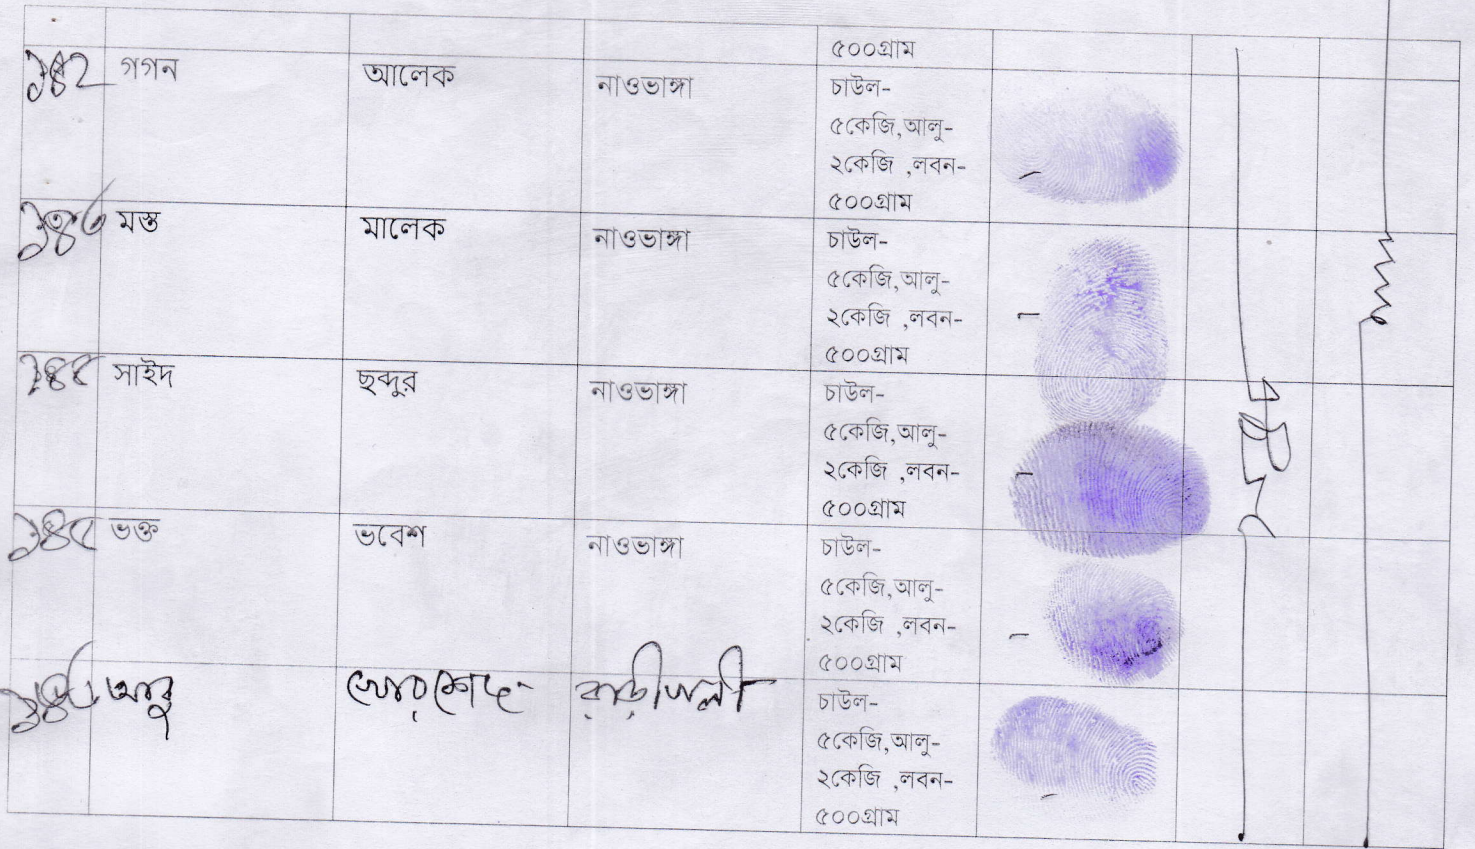 ৫০০গ্রাম
১৪২ গগন আলেক নাওভাঙ্গা চাউল-
৫কেজি,আলু-
২কেজি ,লবন-
৫০০গ্রাম
১৪৩ মস্ত মালেক নাওভাঙ্গা চাউল-
৫কেজি,আলু-
২কেজি ,লবন-
৫০০গ্রাম
১৪৪ সাইদ ছব্দুর নাওভাঙ্গা চাউল-
৫কেজি,আলু-
২কেজি ,লবন-
৫০০গ্রাম
১৪৫ ভক্ত ভবেশ নাওভাঙ্গা চাউল-
৫কেজি,আলু-
২কেজি ,লবন-
৫০০গ্রাম
১৪৬ আবু চাউল-
৫কেজি,আলু-
২কেজি ,লবন-
৫০০গ্রাম